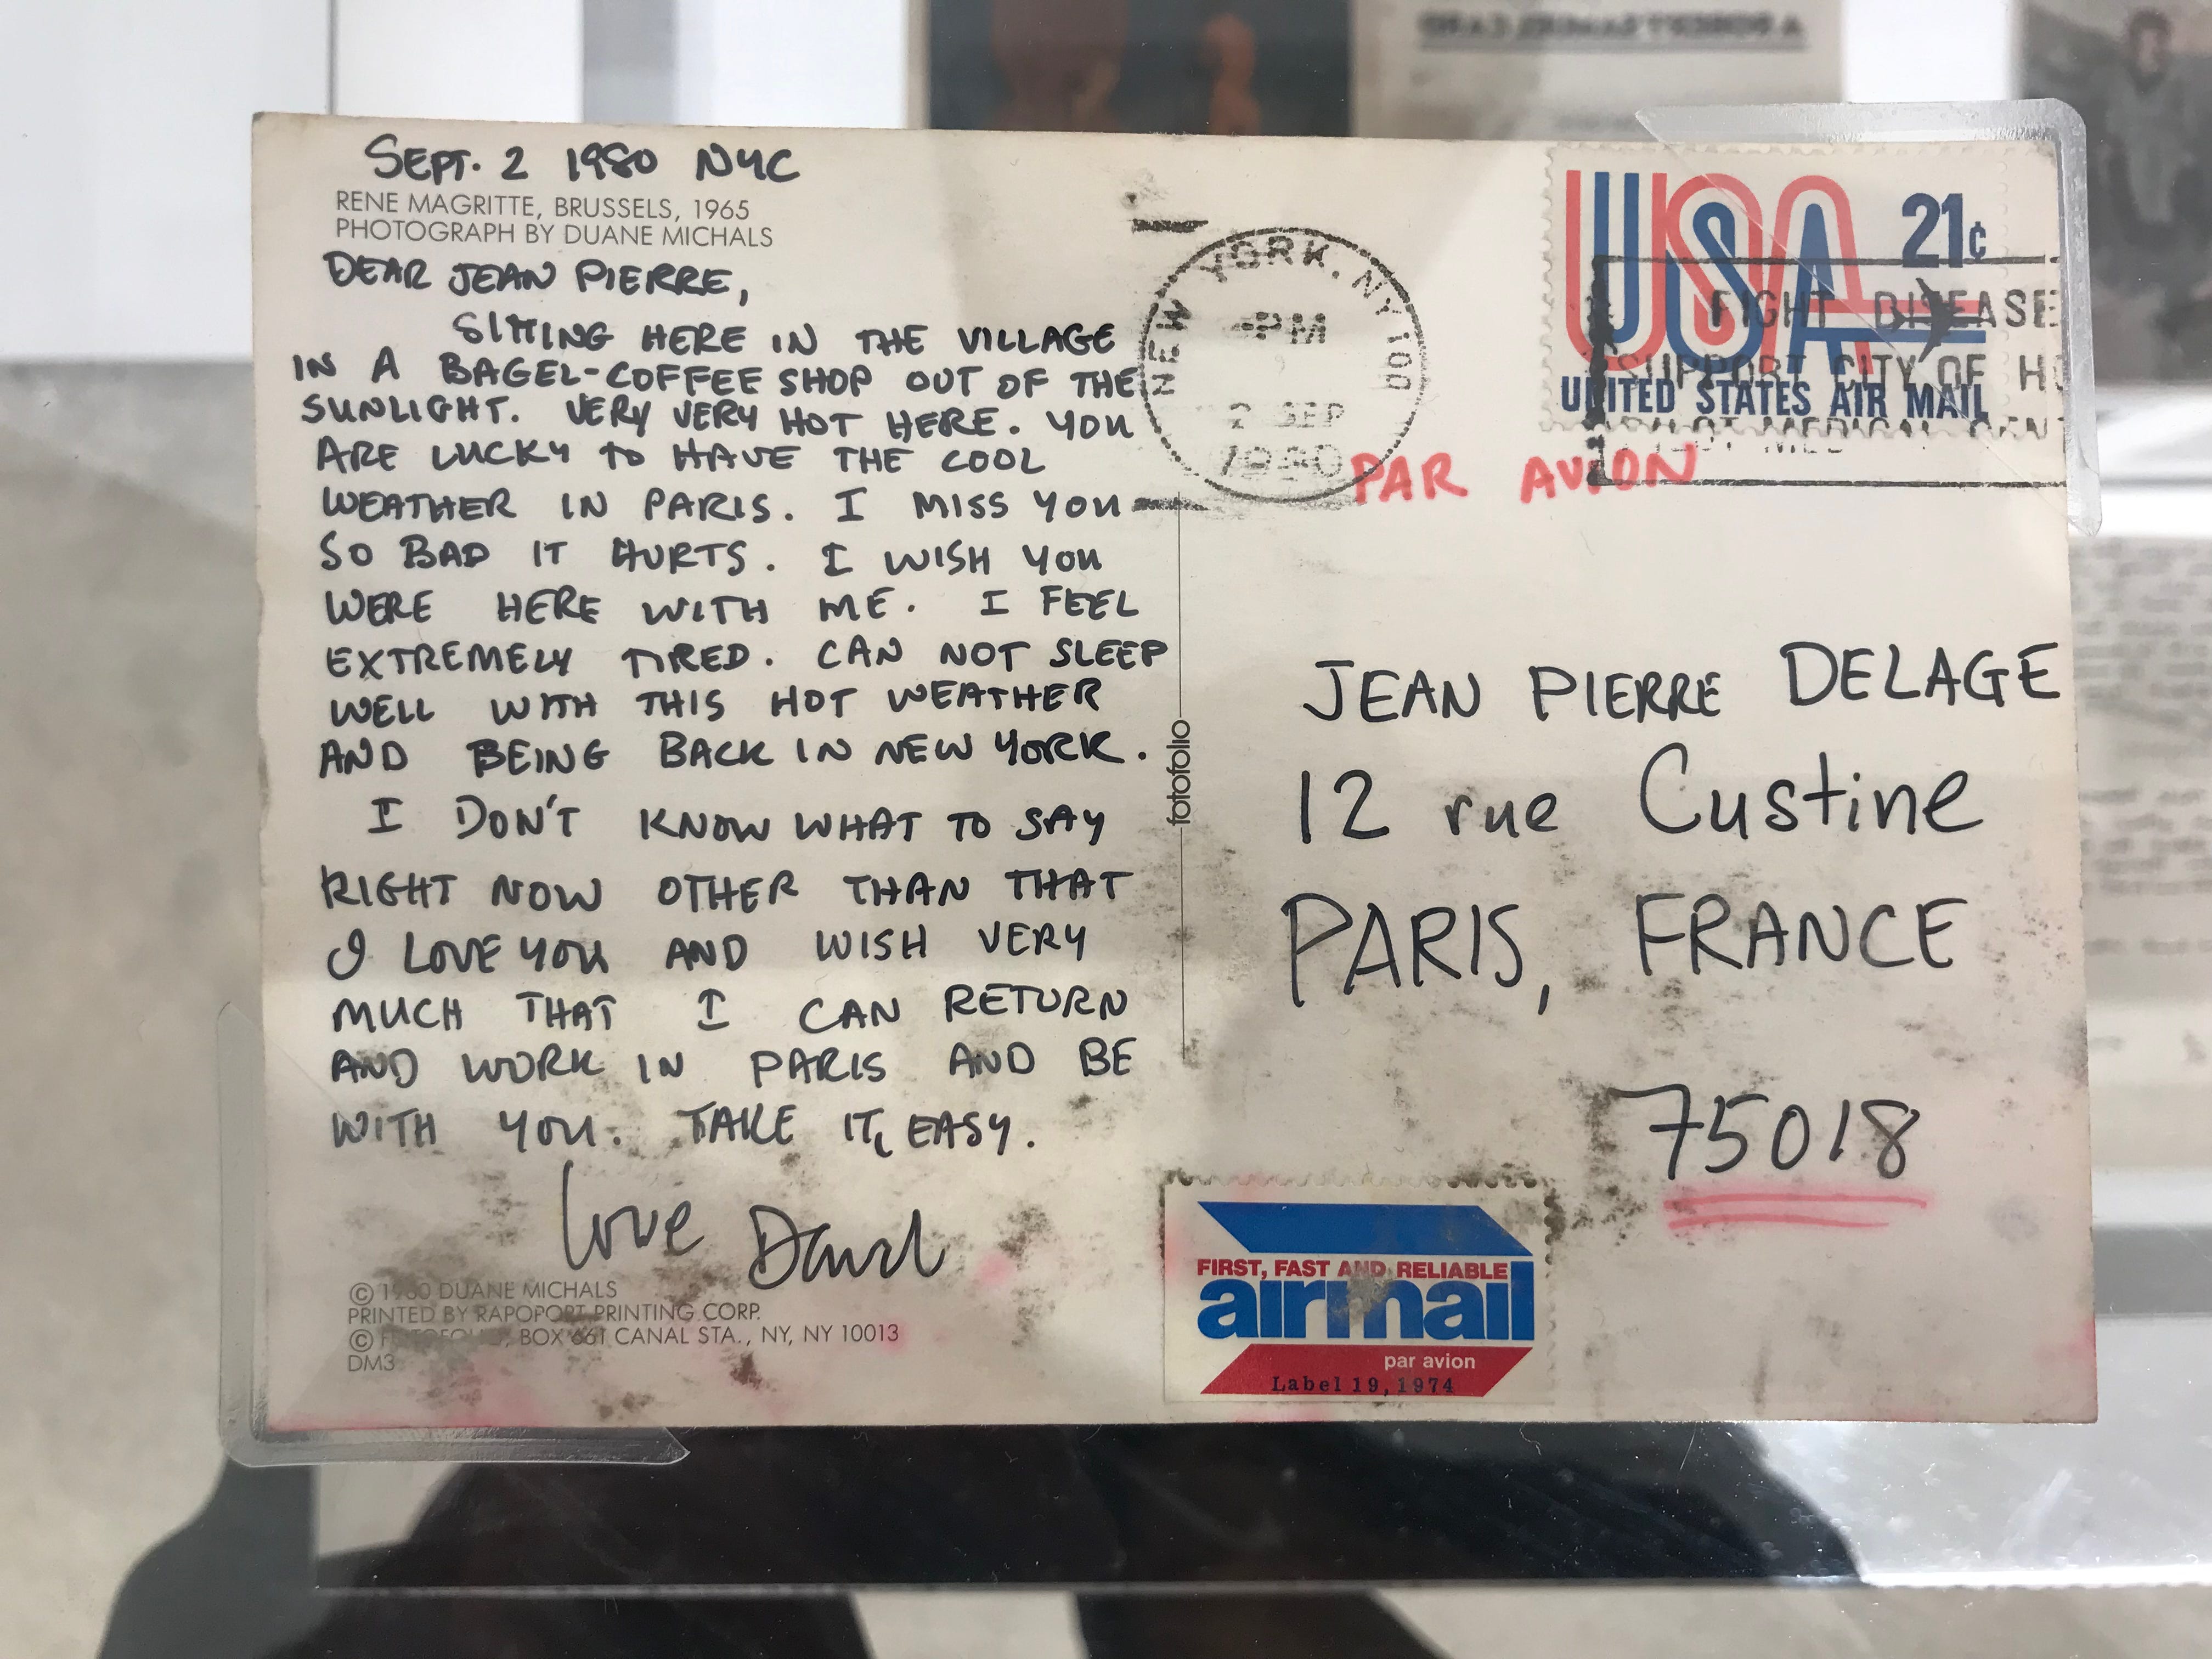 SEPT. 2 1980 NYC
RENE MAGRITTE, BRUSSELS, 1965
PHOTOGRAPH BY DUANE MICHALS
DEAR JEAN PIERRE,
SITTING HERE IN THE VILLAGE
IN A BAGEL-COFFEE SHOP OUT OF THE
SUNLIGHT. VERY VERY HOT HERE. YOU
ARE LUCKY TO HAVE THE COOL
WEATHER IN PARIS. I MISS YOU
SO BAD IT HURTS. I WISH YOU
WERE HERE WITH ME. I FEEL
EXTREMELY TIRED. CAN NOT SLEEP
WELL WITH THIS HOT WEATHER
AND BEING BACK IN NEW YORK.
I DON'T KNOW WHAT TO SAY
RIGHT NOW OTHER THAN THAT
I LOVE YOU AND WISH VERY
MUCH THAT I CAN RETURN
AND WORK IN PARIS AND BE
WITH YOU. TAKE IT EASY.
Love David
© 1980 DUANE MICHALS
PRINTED BY RAPOPORT PRINTING CORP.
© FOTOFOLIO, BOX 661 CANAL STA., NY, NY 10013
DM3
fotofolio
NEW YORK, NY 100
PM
2 SEP
1980
USA 21¢
UNITED STATES AIR MAIL
FIGHT DISEASE
SUPPORT CITY OF
MEDICAL
PAR AVION
JEAN PIERRE DELAGE
12 rue Custine
PARIS, FRANCE
75018
FIRST, FAST AND RELIABLE
airmail
par avion
Label 19, 1974